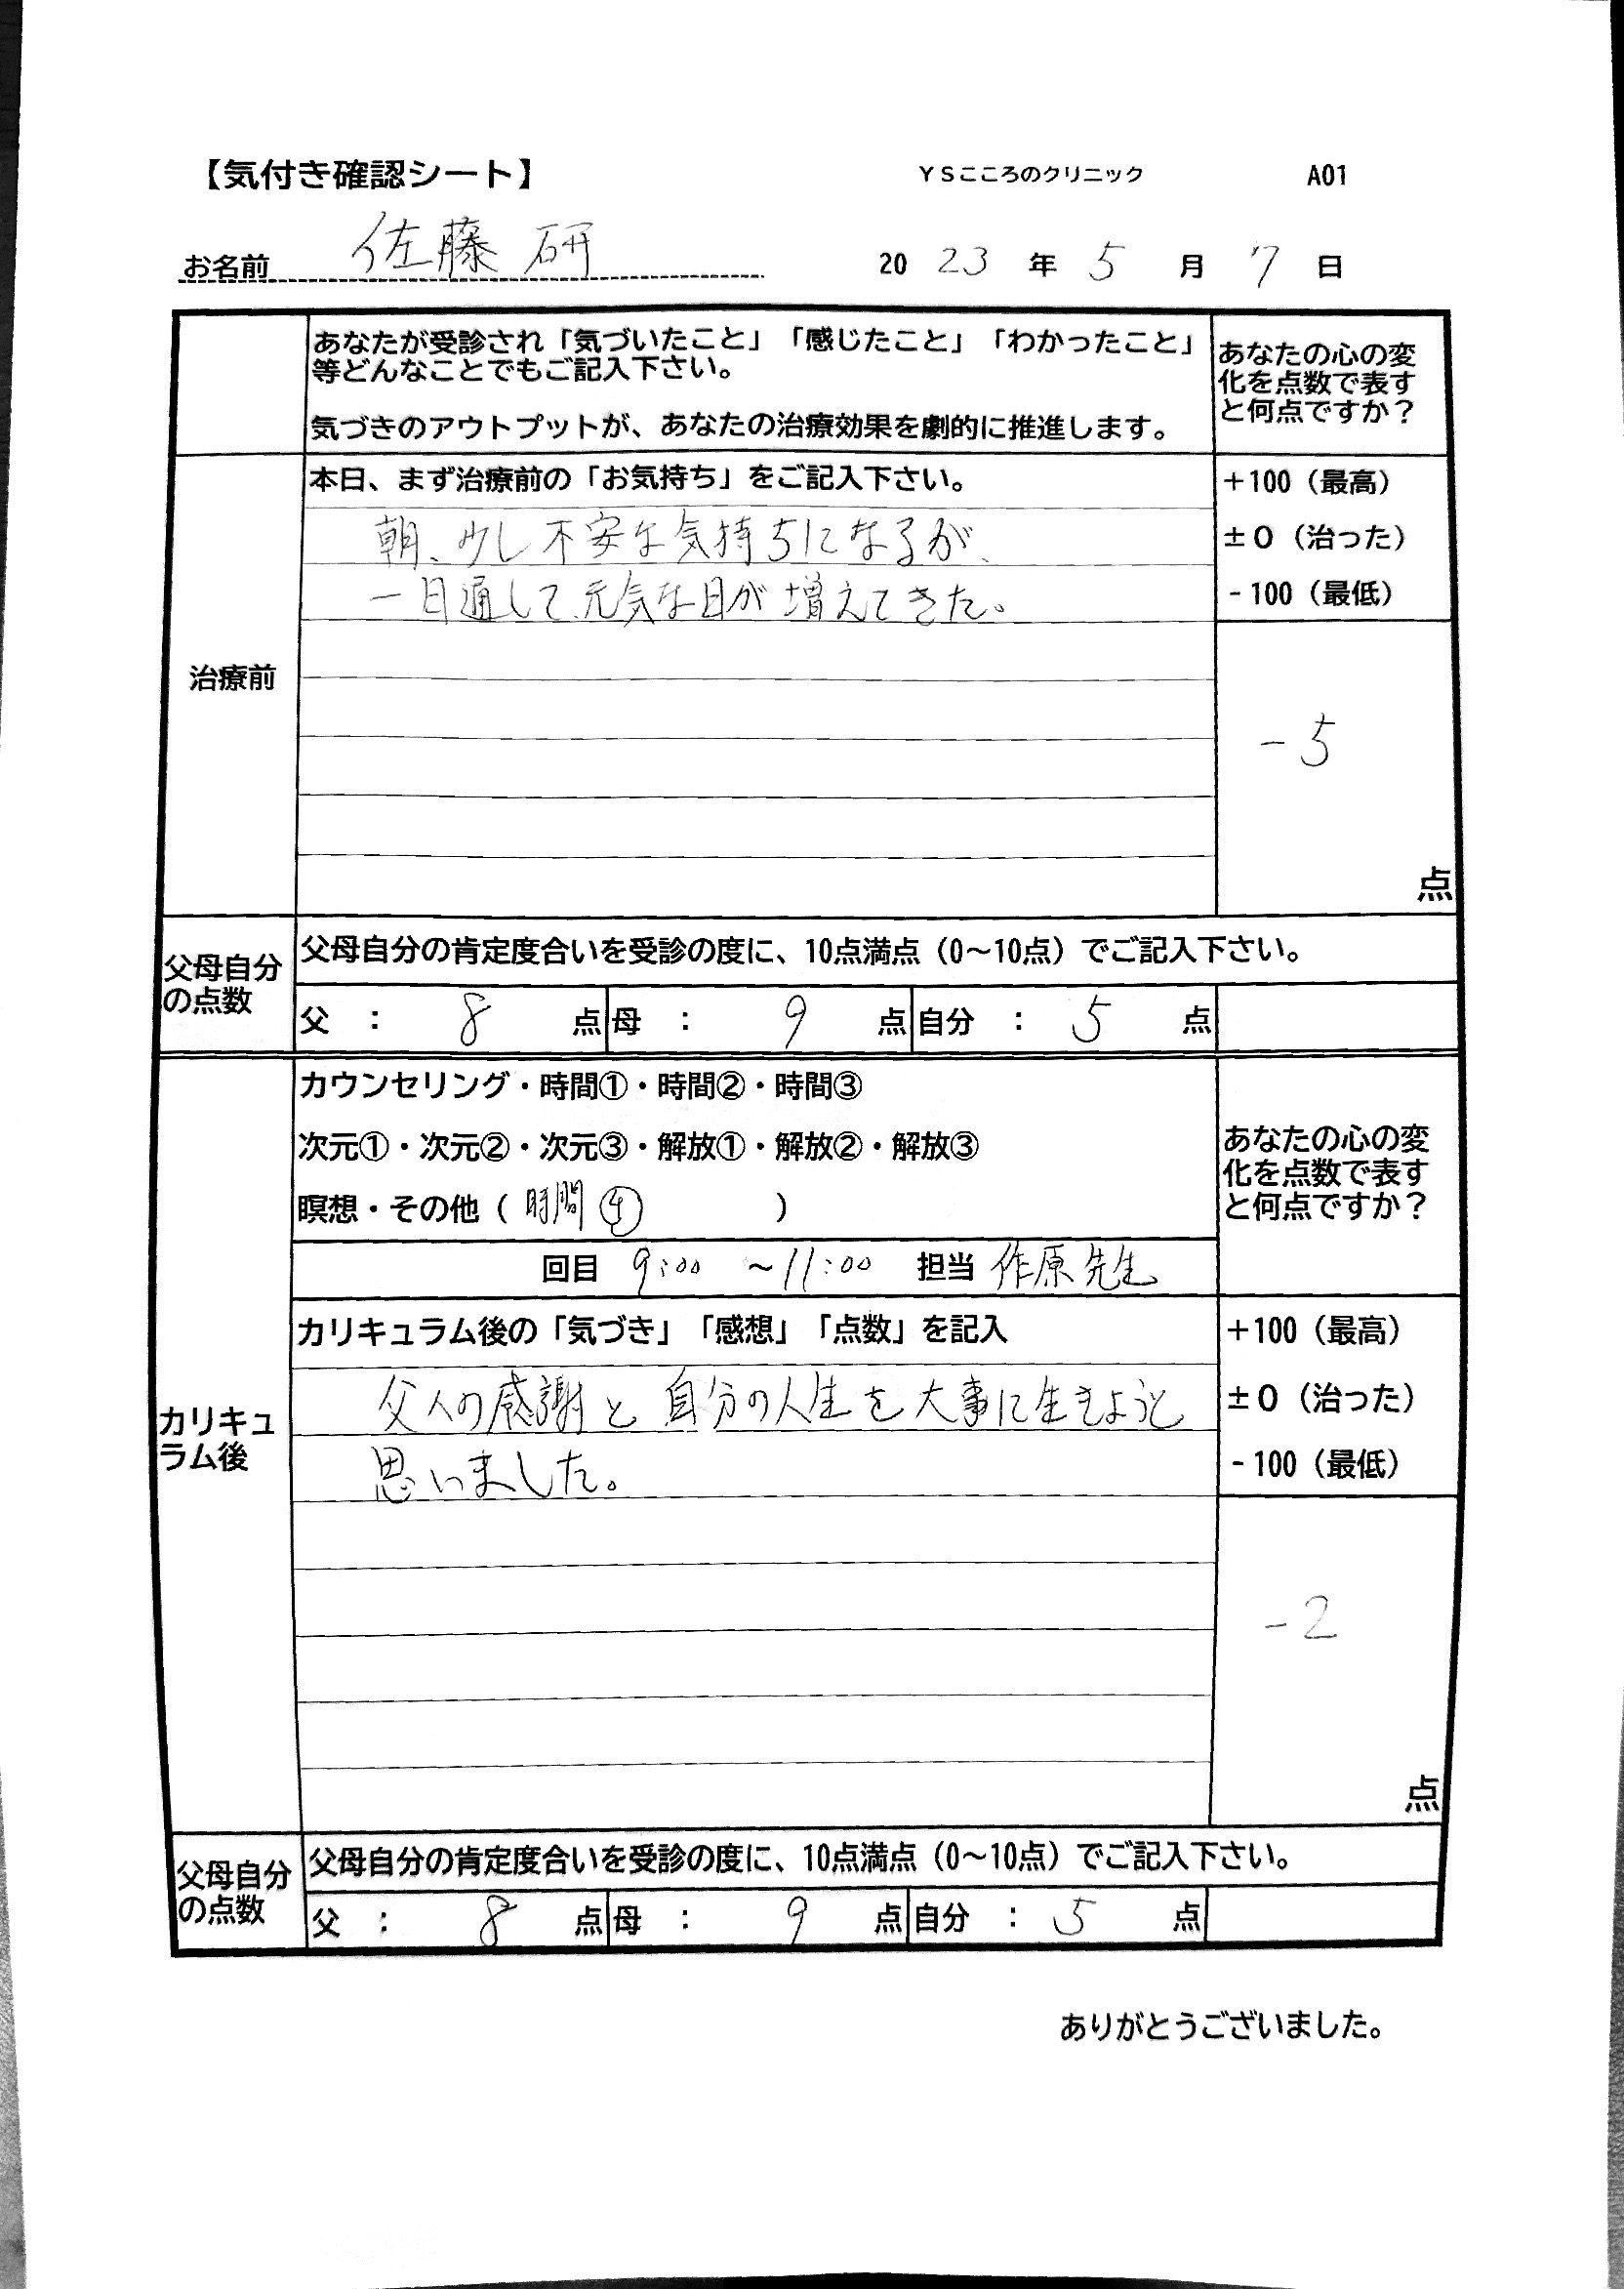 【気付き確認シート】 YSこころのクリニック A01
お名前 佐藤 研 2023年5月7日
あなたが受診され「気づいたこと」「感じたこと」「わかったこと」
等どんなことでもご記入下さい。
気づきのアウトプットが、あなたの治療効果を劇的に推進します。
あなたの心の変
化を点数で表す
と何点ですか？
治療前
本日、まず治療前の「お気持ち」をご記入下さい。
朝、少し不安な気持ちになるが、
一日通して元気な日が増えてきた。
+100（最高）
±0（治った）
-100（最低）
-5
点
父母自分
の点数
父母自分の肯定度合いを受診の度に、10点満点（0～10点）でご記入下さい。
父 ： 8 点 母 ： 9 点 自分 ： 5 点
カリキュ
ラム後
カウンセリング・時間①・時間②・時間③
次元①・次元②・次元③・解放①・解放②・解放③
瞑想・その他（時間④）
回目 9:00 ～11:00 担当 作原先生
あなたの心の変
化を点数で表す
と何点ですか？
カリキュラム後の「気づき」「感想」「点数」を記入
父への感謝と自分の人生を大事に生きようと
思いました。
+100（最高）
±0（治った）
-100（最低）
-2
点
父母自分
の点数
父母自分の肯定度合いを受診の度に、10点満点（0～10点）でご記入下さい。
父 ： 8 点 母 ： 9 点 自分 ： 5 点
ありがとうございました。